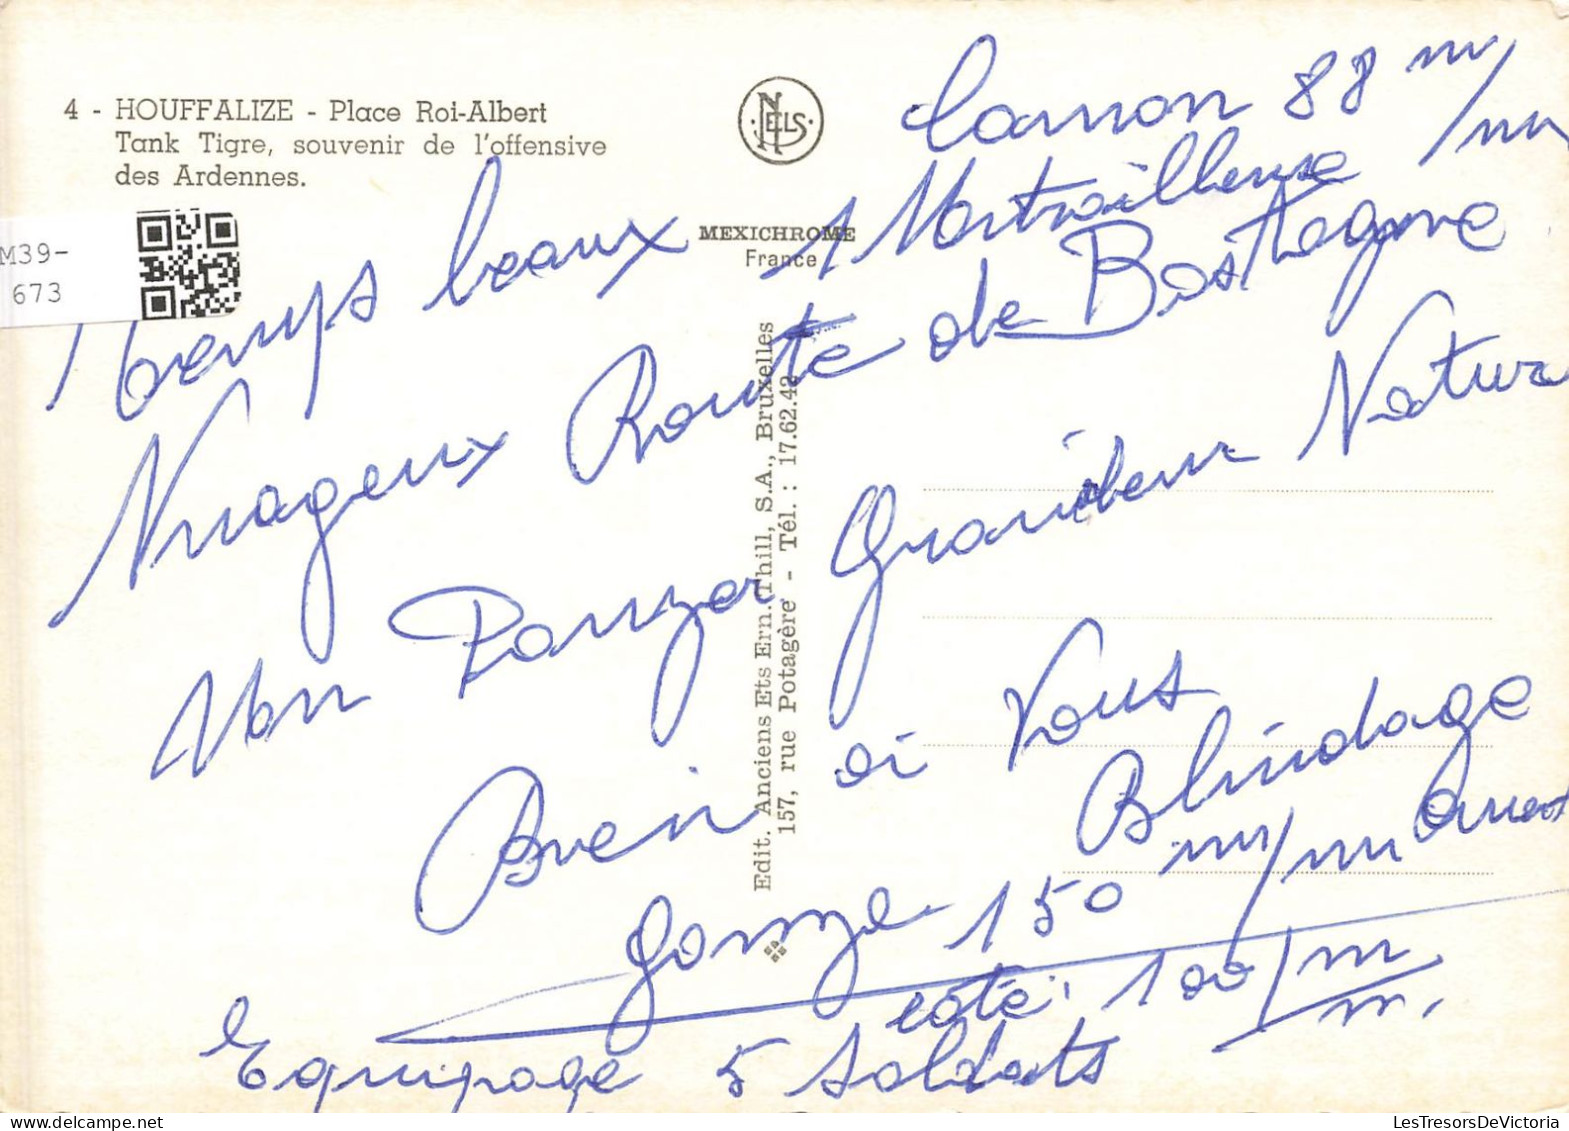 4 - HOUFFALIZE - Place Roi-Albert
Tank Tigre, souvenir de l'offensive
des Ardennes.
NELS
MEXICHROME
France
Edit. Anciens Ets Ern. Thill, S.A., Bruxelles
157, rue Potagère - Tél. : 17.62.42
M39-
673
Canon 88 m/m
1 Mitrailleuse
Temps beaux
Nuageux Route de Bastogne
Mon Panzer Grandeur Natur
Bien à Vous
Gonze
Blindage
150 m/m avant
côté 100 m/m.
Equipage 5 Soldats
LesTresorsDeVictoria